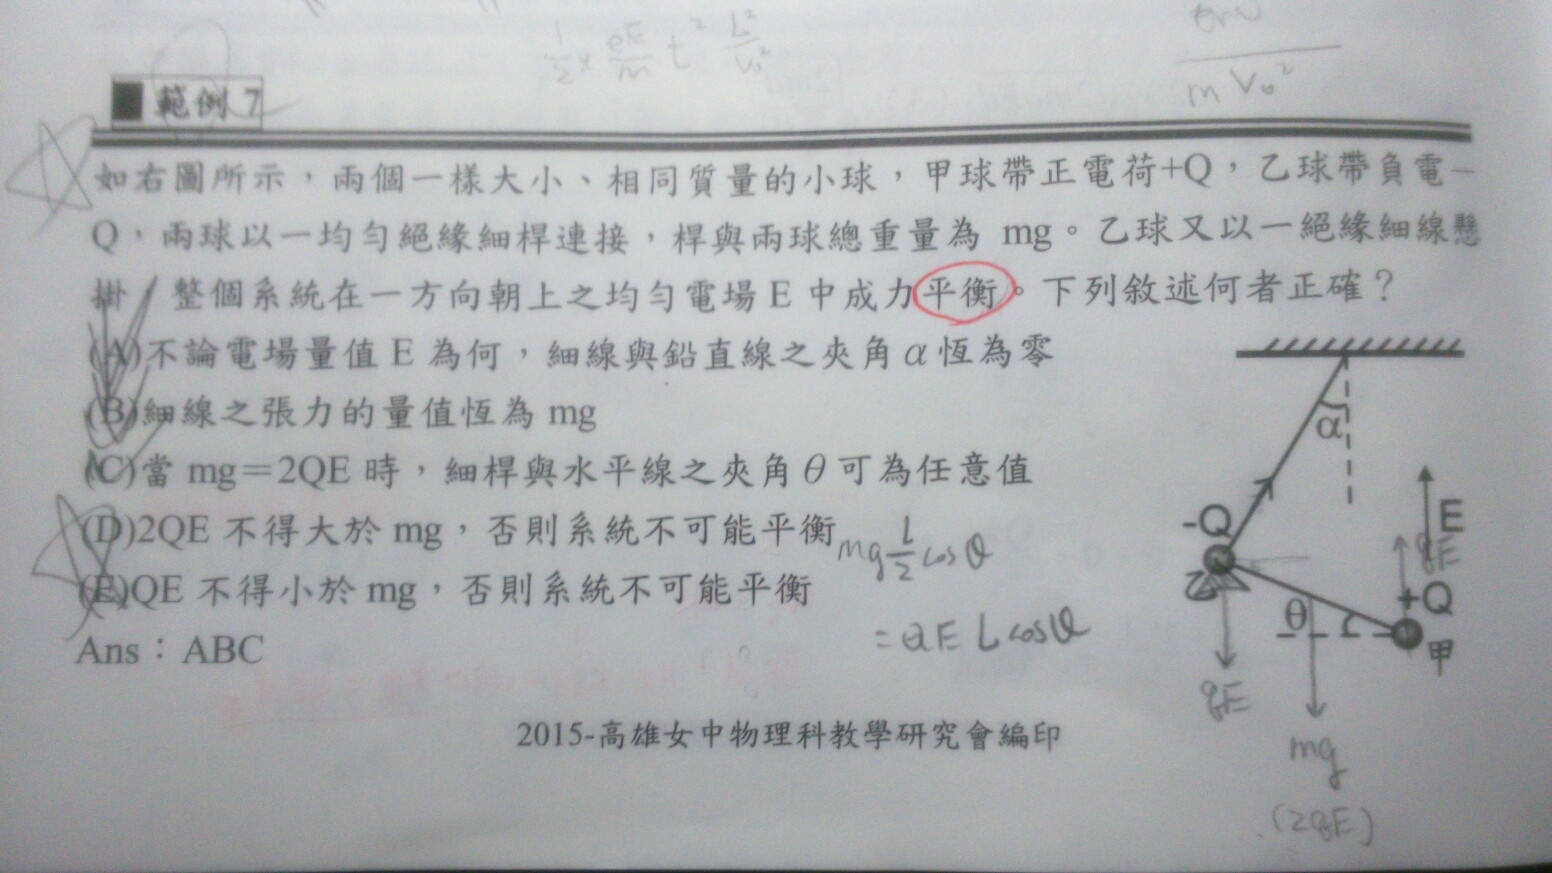 1/2 × eE/m t² L²/v₀²
mV₀²
範例 7
如右圖所示，兩個一樣大小、相同質量的小球，甲球帶正電荷+Q，乙球帶負電－
Q，兩球以一均勻絕緣細桿連接，桿與兩球總重量為 mg。乙球又以一絕緣細線懸
掛，整個系統在一方向朝上之均勻電場 E 中成力平衡。下列敘述何者正確？
(A)不論電場量值 E 為何，細線與鉛直線之夾角 α 恆為零
(B)細線之張力的量值恆為 mg
(C)當 mg＝2QE 時，細桿與水平線之夾角 θ 可為任意值
(D)2QE 不得大於 mg，否則系統不可能平衡
(E)QE 不得小於 mg，否則系統不可能平衡
Ans：ABC
mg L/2 cosθ
= QE L cosθ
α
-Q
E
qE
+Q
乙
θ
甲
qE
mg
(2qE)
2015-高雄女中物理科教學研究會編印